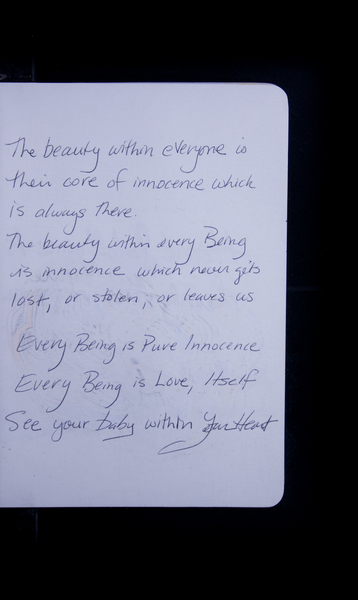 The beauty within everyone is
their core of innocence which
is always there.
The beauty within every Being
is innocence which never gets
lost, or stolen, or leaves us
Every Being is Pure Innocence
Every Being is Love, Itself
See your baby within Your Heart